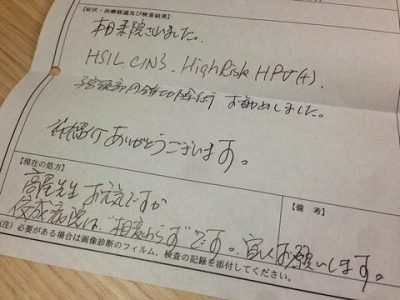 【症状・治療経過及び検査結果】
本日来院されました。
HSIL CIN3. High Risk HPV(+).
子宮頸部円錐切除術 お勧めしました。
ありがとうございます。
【現在の処方】
高尾先生 お元気ですか
病院は"相変わらず"です。宜しくお願いします。
【備 考】
(注)必要がある場合は画像診断のフィルム、検査の記録を添付してください。